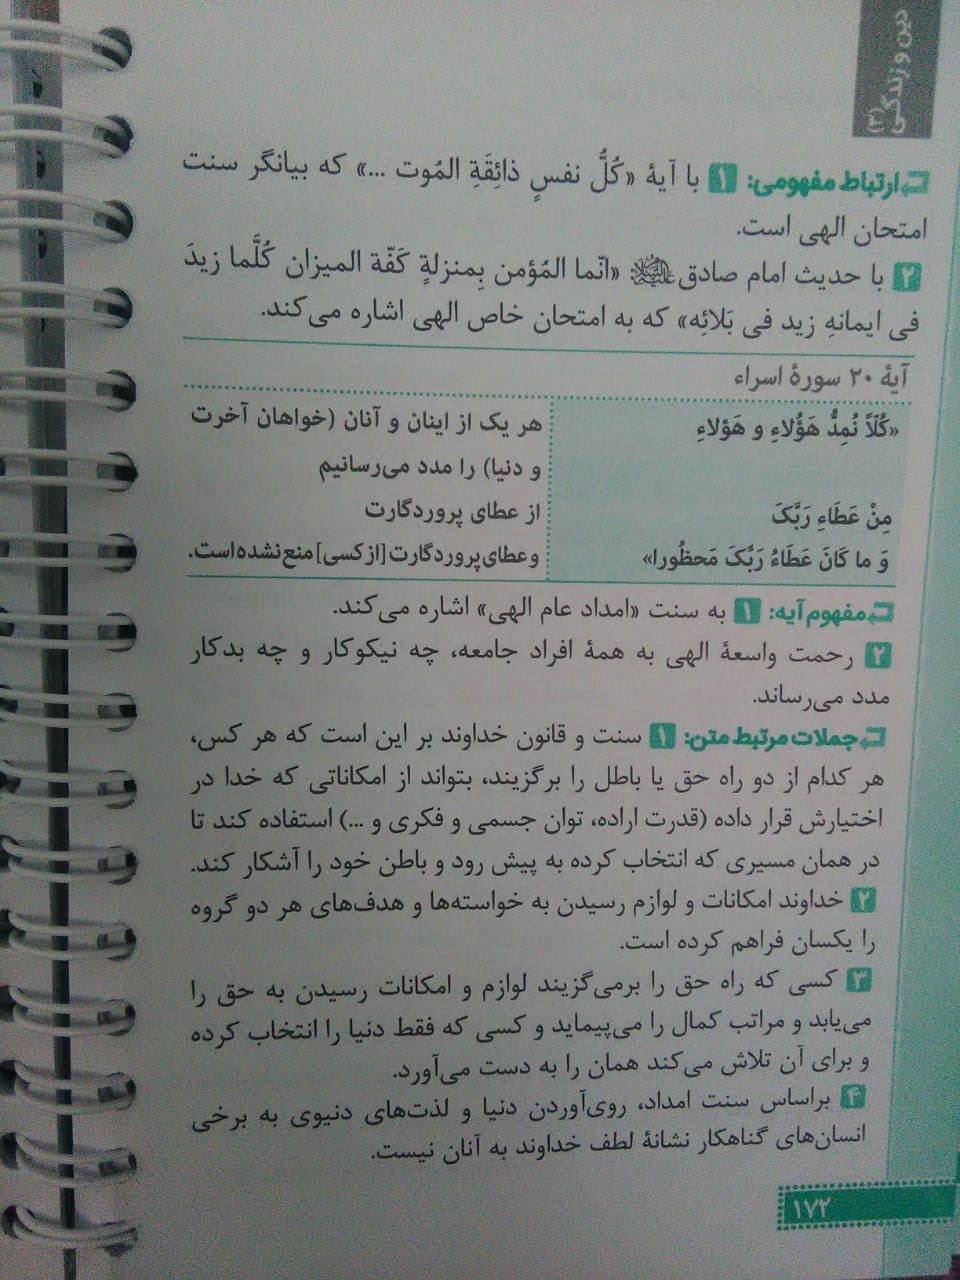 دین و زندگی (۳)
ارتباط مفهومی: ۱ با آیهٔ «کُلُّ نفسٍ ذائِقَةِ المُوت ...» که بیانگر سنت
امتحان الهی است.
۲ با حدیث امام صادق علیه‌السلام: «انّما المُؤمن بِمنزلةٍ کَفّة المیزان کُلَّما زیدَ
فی ایمانهِ زید فی بَلائِه» که به امتحان خاص الهی اشاره می‌کند.
آیهٔ ۲۰ سورهٔ اسراء
«کُلّاً نُمِدُّ هَؤُلاءِ و هَؤلاءِ
هر یک از اینان و آنان (خواهان آخرت
و دنیا) را مدد می‌رسانیم
مِنْ عَطَاءِ رَبَّکَ
از عطای پروردگارت
وَ ما کَانَ عَطَاءُ رَبِّکَ مَحظُورا»
و عطای پروردگارت [از کسی] منع نشده است.
مفهوم آیه: ۱ به سنت «امداد عام الهی» اشاره می‌کند.
۲ رحمت واسعهٔ الهی به همهٔ افراد جامعه، چه نیکوکار و چه بدکار
مدد می‌رساند.
جملات مرتبط متن: ۱ سنت و قانون خداوند بر این است که هر کس،
هر کدام از دو راه حق یا باطل را برگزیند، بتواند از امکاناتی که خدا در
اختیارش قرار داده (قدرت اراده، توان جسمی و فکری و ...) استفاده کند تا
در همان مسیری که انتخاب کرده به پیش رود و باطن خود را آشکار کند.
۲ خداوند امکانات و لوازم رسیدن به خواسته‌ها و هدف‌های هر دو گروه
را یکسان فراهم کرده است.
۳ کسی که راه حق را برمی‌گزیند لوازم و امکانات رسیدن به حق را
می‌یابد و مراتب کمال را می‌پیماید و کسی که فقط دنیا را انتخاب کرده
و برای آن تلاش می‌کند همان را به دست می‌آورد.
۴ براساس سنت امداد، روی‌آوردن دنیا و لذت‌های دنیوی به برخی
انسان‌های گناهکار نشانهٔ لطف خداوند به آنان نیست.
۱۷۲